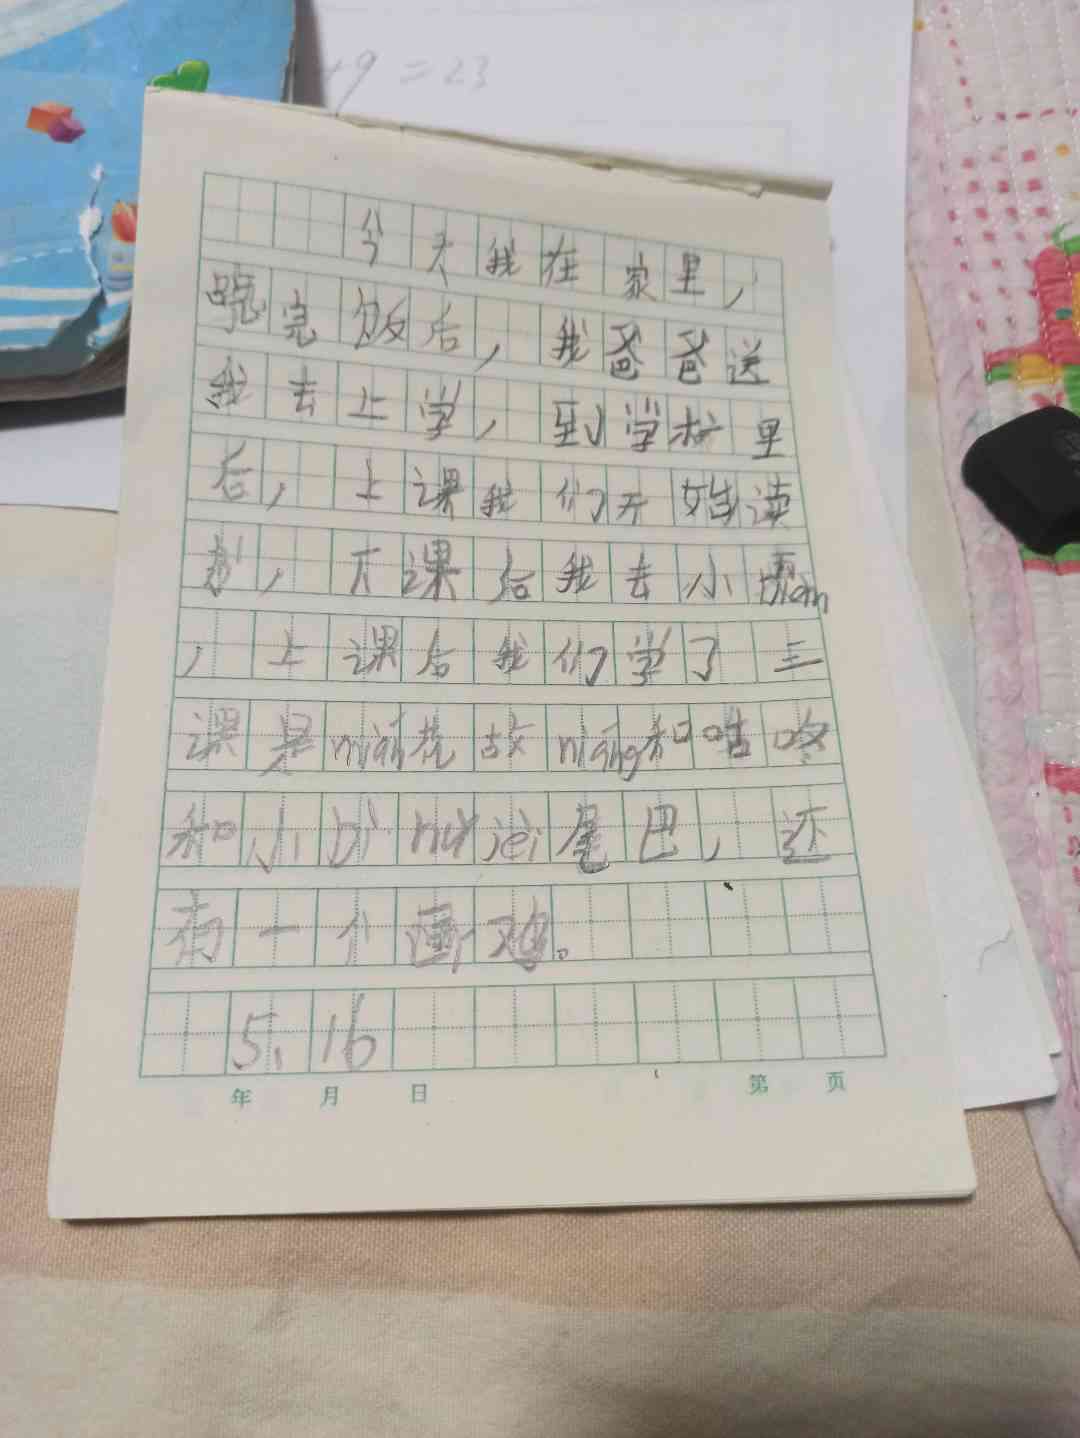 +9=23
今天我在家里,
完饭后,我爸爸送
我去上学,到学校里
后,上课我们开始读
书,下课后我去小便
,上课后我们学了三
课是mián花故niáng和咕咚
和小bì hǔ jiè尾巴,还
有一个画鸡。
5.16
年 月 日 第 页